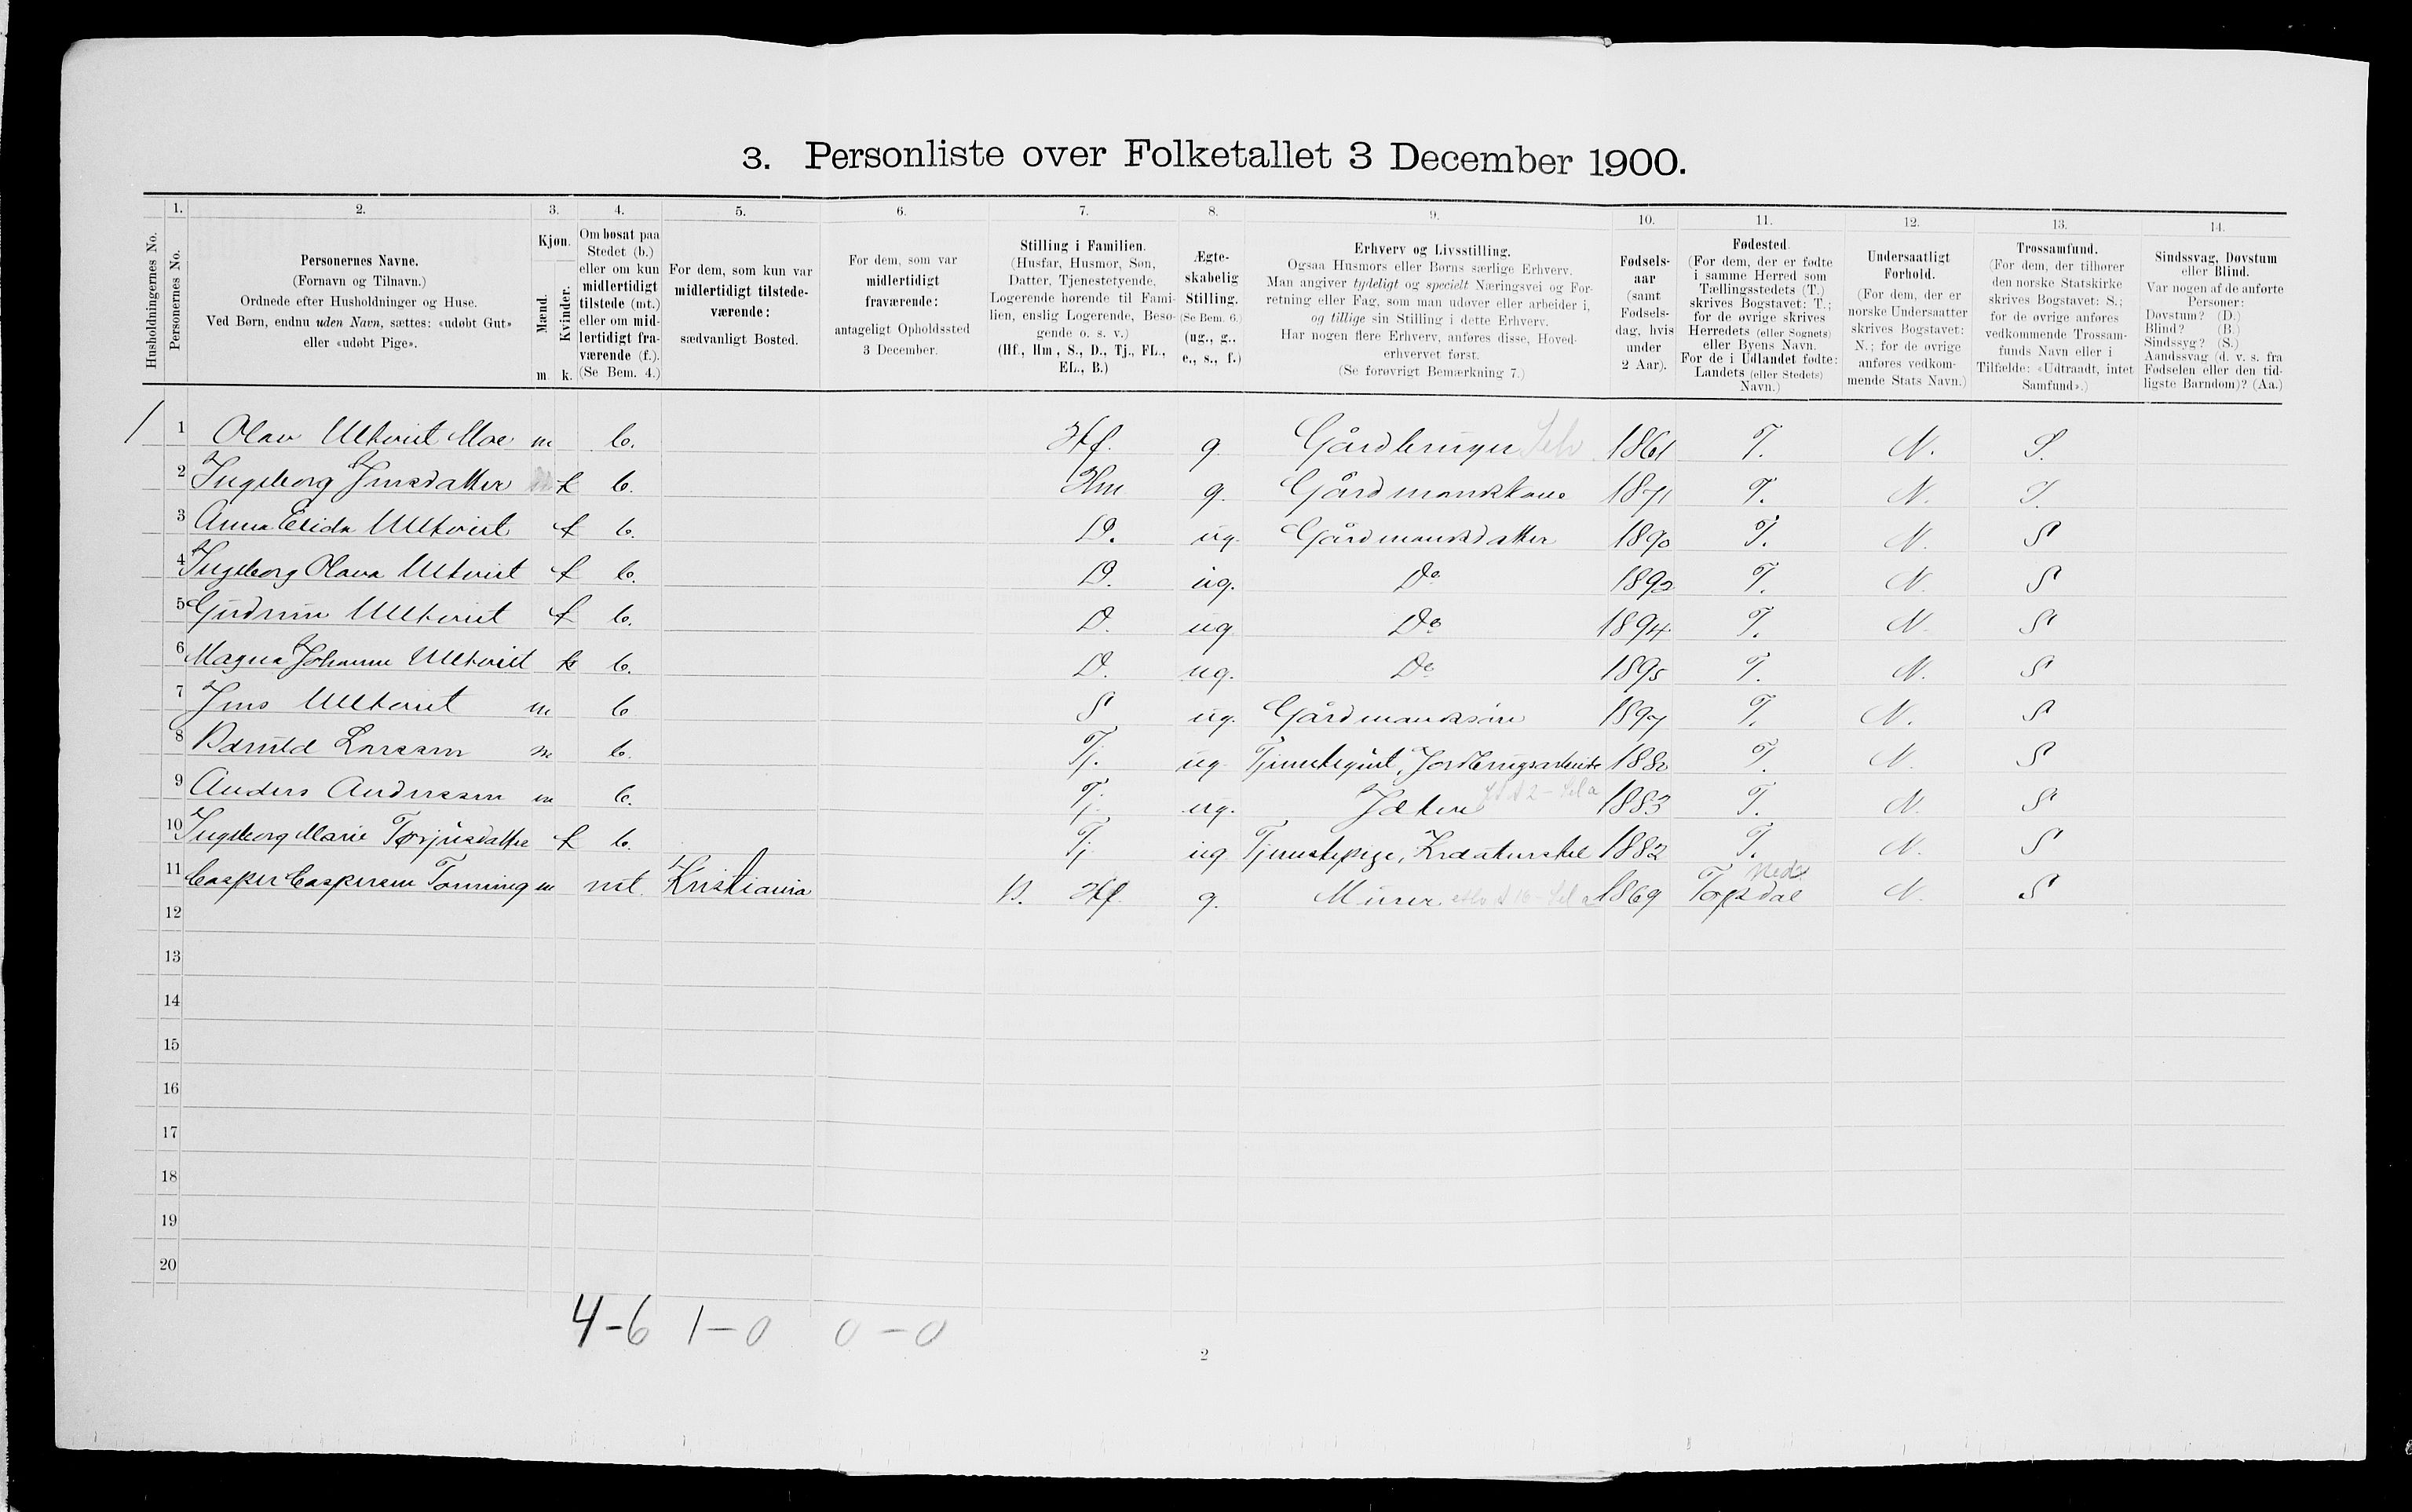 3. Personliste over Folketallet 3 December 1900.
1. 2. 3. 4. 5. 6. 7. 8. 9. 10. 11. 12. 13. 14.
Husholdningernes No.
Personernes No.
Personernes Navne.
(Fornavn og Tilnavn.)
Ordnede efter Husholdninger og Huse.
Ved Børn, endnu uden Navn, sættes: «udøbt Gut»
eller «udøbt Pige».
Kjøn.
Mænd.
Kvinder.
m. k.
Om bosat paa
Stedet (b.)
eller om kun
midlertidigt
tilstede (mt.)
eller om mid-
lertidigt fra-
værende (f.).
(Se Bem. 4.)
For dem, som kun var
midlertidigt tilstede-
værende:
sædvanligt Bosted.
For dem, som var
midlertidigt
fraværende:
antageligt Opholdssted
3 December.
Stilling i Familien.
(Husfar, Husmor, Søn,
Datter, Tjenestetyende,
Logerende hørende til Fami-
lien, enslig Logerende, Besø-
gende o. s. v.)
(Hf., Hm., S., D., Tj., FL.,
EL., B.)
Ægte-
skabelig
Stilling.
(Se Bem. 6.)
(ug., g.,
e., s., f.)
Erhverv og Livsstilling.
Ogsaa Husmors eller Børns særlige Erhverv.
Man angiver tydeligt og specielt Næringsvei og For-
retning eller Fag, som man udøver eller arbeider i,
og tillige sin Stilling i dette Erhverv.
Har nogen flere Erhverv, anføres disse, Hoved-
erhvervet først.
(Se forøvrigt Bemærkning 7.)
Fødsels-
aar
(samt
Fødsels-
dag, hvis
under
2 Aar).
Fødested.
(For dem, der er fødte
i samme Herred som
Tællingsstedets (T.)
skrives Bogstavet: T.;
for de øvrige skrives
Herredets (eller Sognets)
eller Byens Navn.
For de i Udlandet fødte:
Landets (eller Stedets)
Navn.)
Undersaatligt
Forhold.
(For dem, der er
norske Undersaatter
skrives Bogstavet:
N.; for de øvrige
anføres vedkom-
mende Stats Navn.)
Trossamfund.
(For dem, der tilhører
den norske Statskirke
skrives Bogstavet: S.;
for de øvrige anføres
vedkommende Trossam-
funds Navn eller i
Tilfælde: «Udtraadt, intet
Samfund».)
Sindssvag, Døvstum
eller Blind.
Var nogen af de anførte
Personer:
Døvstum? (D.)
Blind? (B.)
Sindssyg? (S.)
Aandssvag (d. v. s. fra
Fødselen eller den tid-
ligste Barndom)? (Aa.)
1 1 Olav Ulltveit Moe m b. Hf. g. Gårdbruger Selv 1861 T. N. S.
2 Ingeborg Jensdatter k b. Hm g. Gårdmandskone 1871 T. N. S.
3 Anna Elida Ulltveit k b. D. ug. Gårdmandsdatter 1890 T. N. S
4 Ingeborg Olava Ulltveit k b. D. ug. Do 1892 T. N. S
5 Gudrun Ulltveit k b. D. ug Do 1894 T. N. S
6 Magna Johanne Ulltveit k b. D. ug. Do 1895 T. N. S
7 Jens Ulltveit m b S ug. Gårdmandssøn 1897 T. N. S
8 Larssen m b. Tj. ug Tjenestegut, Jordbrugsarbeide 1880 T. N. S
9 Anders Anderssen m b. Tj ug. Jæter 1883 T. N. S
10 Ingeborg Marie Torjusdatter k b. Tj ug Tjenestepige, Kreaturstel 1882 T. N. S
11 Casper Casperssen Tønning m mt. Kristiania B. Hf. g. Murer 1869 N. S
12
13
14
15
16
17
18
19
20
4-6 1-0 0-0
2